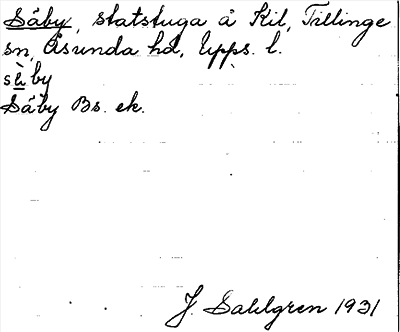 Säby, statstuga å Kil, Tillinge
sn, Åsunda hd, Upps. l.
sè̱by
Säby Bs. ek.
J. Sahlgren 1931